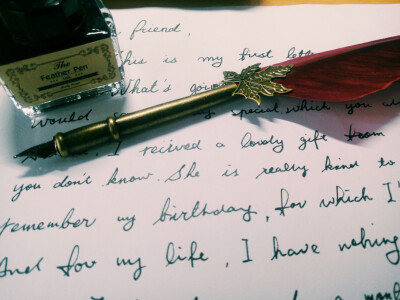 The
Feather Pen
friend,
this is my first lette
What's goin
would special which you w
I reiived a lovely gift from
you don't know. She is really kind to
remember my birthday, for which I'
And for my life, I have nothing